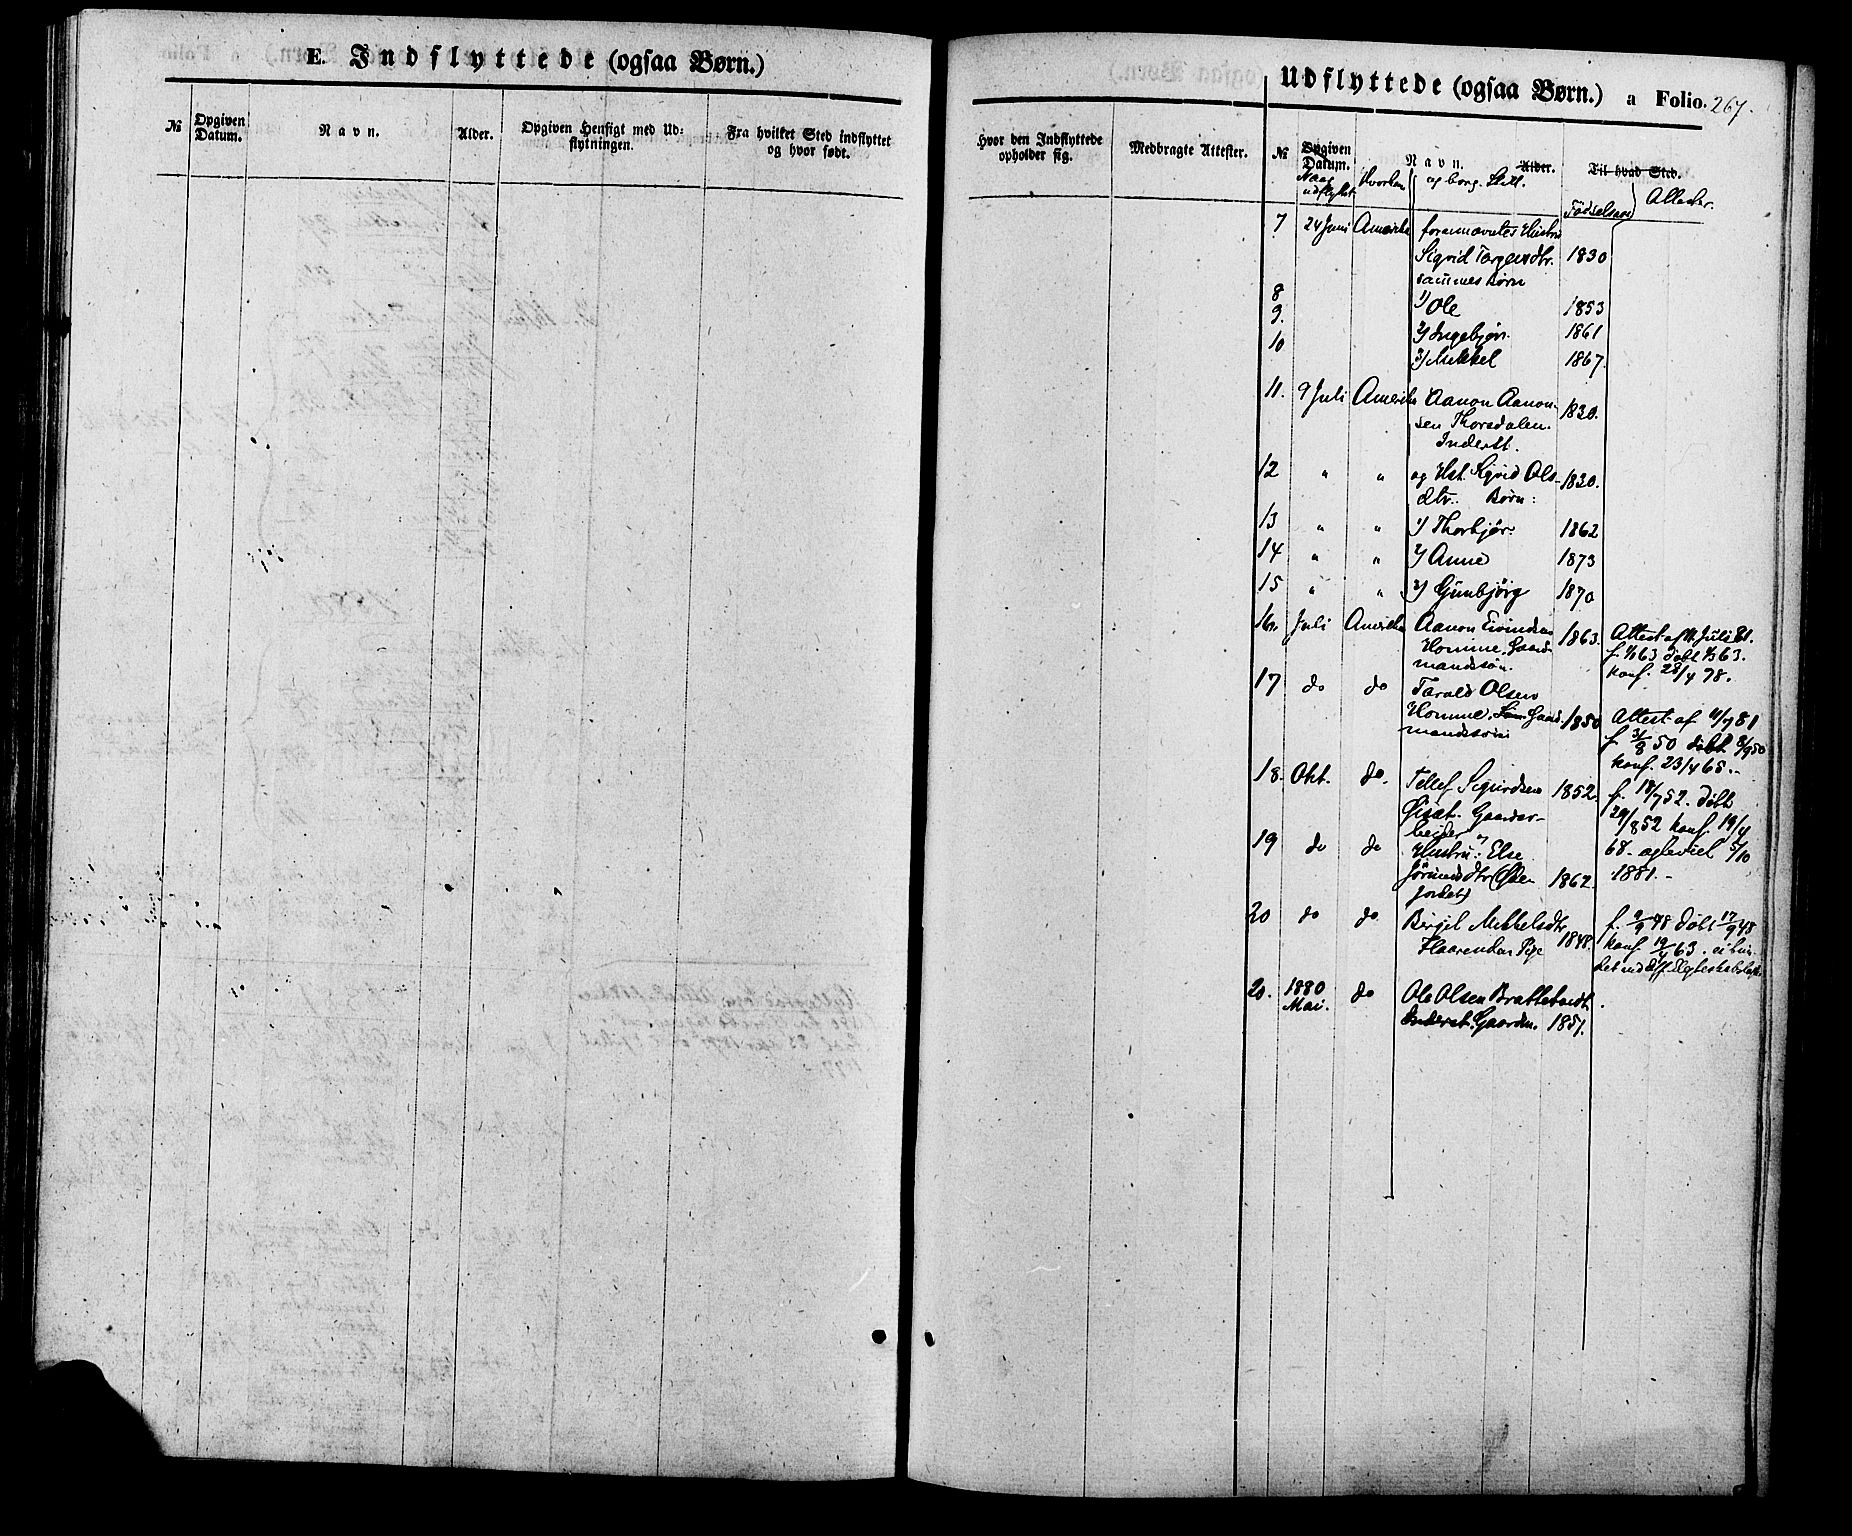 E. Indflyttede (ogsaa Børn.)
№ Opgiven Datum. Navn. Alder. Opgiven Hensigt med Udflytningen. Fra hvilket Sted indflyttet og hvor født.
Hvor den Indflyttede opholder sig. Medbragte Attester.
Udflyttede (ogsaa Børn.) a Folio. 267.
№ Opgiven Datum. Navn. Alder. Til hvad Sted.
Naar udflyttet Hvorhen og borg. Still. Fødselsaar Attester.
7 24 Juni Amerika forannævntes Hustru
Sigrid Targeirsdtr. 1830
sammes Børn
8 1) Ole 1853
9. 2) Ingebjør. 1861
10 3) Mikkel 1867.
11. 9 Juli Amerika Aanon Aanon-
sen Thorsdalen. 1830.
Inderst.
12 " " og Hst. Sigrid Ols-
dtr. Børn: 1830.
13 " " 1) Thorbjør. 1862
14 " " 2) Anne 1873
15 " " 3) Gunbjørg 1870
16. Juli Amerika Aanon Eivindsen 1863. Attest af Juli 81.
Homme, Gaard- 63 døbt 63.
mandssøn. konf. 28/4 78.
17 do do Tarald Olsen
Homme, Gaard- 1850 Attest af 11/7 81
mandssøn f. 31/8 50 døbt 8/9 50
konf. 23/4 65.
18. Okt. do. Tellef Sigurdsen 1852. f. 18/7 52. døbt
Gaardar- 29/8 52 konf. 19/4
beider
19 do do Hustru: Else 68. 5/10
Jørundsdtr 1862. 1881.
20 do do Birgit Mikkelsdtr f. 9/9 48 døbt 17/9 48
Pige 1848. konf. 19/4 63.
20. 1880 do Ole Olsen
Mai. Inderst. 1857.